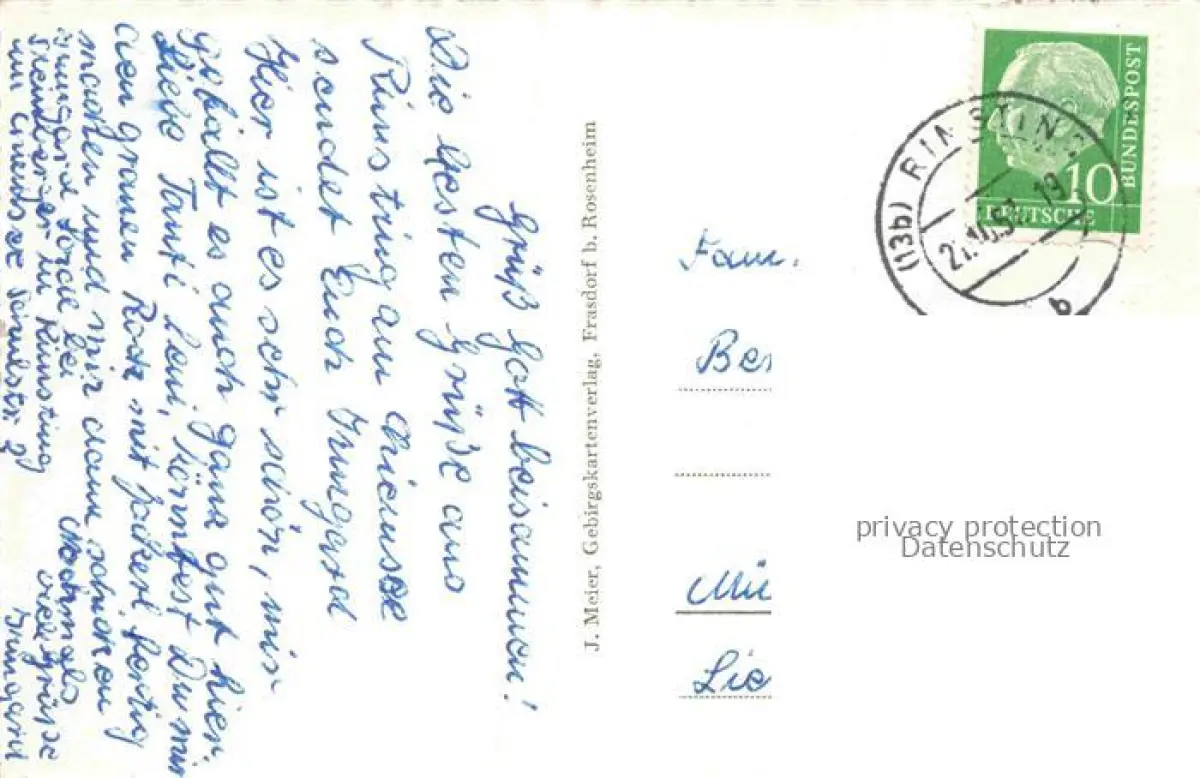 Grüß Gott beisammen!
Die besten Grüße aus
Rimsting am Chiemsee
sendet Euch Irmgard
Hier ist es sehr schön, mir
gefällt es auch ganz gut hier.
Liebe Tante Leni, könntest Du mir
den grauen Rock mit Jackerl fertig
machen und mir dann schicken
Irmgard
bei
in Rimsting
am Chiemsee
Nochmals
viele Grüße
Irmgard
J. Meier, Gebirgskartenverlag, Frasdorf b. Rosenheim
Fam.
Be
Mü
Lie
(13b) RIMSTING
21.10.57. 19
b
10
BUNDESPOST
DEUTSCHE
privacy protection
Datenschutz